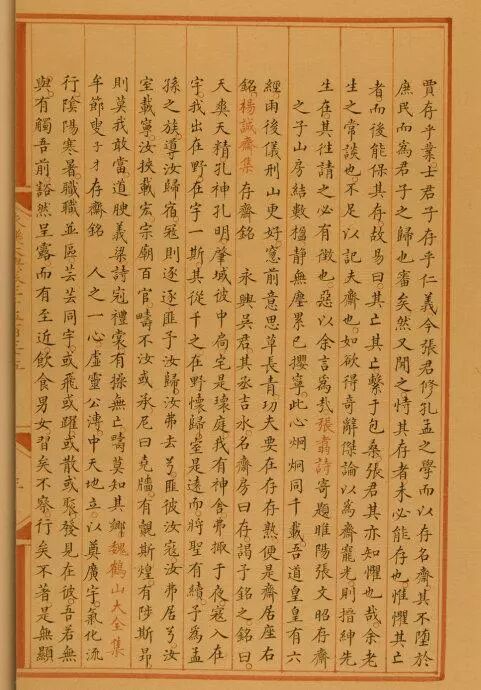 賈存乎業士君子存乎仁義今張君修孔孟之學而以存名齋其不墮於
庶民而為君子之歸也審矣然又聞之恃其存者未必能存也惟懼其亡
者而後能保其存故易曰其亡其亡繫于包桑張君其亦知懼也哉余老
生之常談也不足以記夫齋也如欲得奇辭傑論以為齋寵光則搢紳先
生在其往請之必有徵也惡以余言為哉張翥詩寄題睢陽張文昭存齋
之子山房結數楹靜無塵累已攖寧此心炯炯同千載吾道皇皇有六
經雨後儀刑山更好窓前意思草長青功夫要在存存熟便是齋居座右
銘楊誠齋集存齋銘 永興吳君其丞吉水名齋房曰存謁予銘之銘曰
天奭天精孔神孔明肇域彼中扃宅是瓌庭我有神舍弗掫于夜寇入在
宇我出在野在宇一斯其從千之在野懷歸室是遠而時聖有續子為孟
孫之族導汝歸宿寇則逐逐匪予汝歸汝弗去兮匪彼汝寇汝弗居兮汝
室載寧汝挾載宏宗廟百官疇不汝或承尼曰堯牆有覿斯煌有陟斯昂
則莫我敢當道腴義梁詩冠禮裳有操無亡疇莫知其鄉魏鶴山大全集
牟節叟子才存齋銘 人之一心虛靈公溥中天地立以奠廣宇氣化流
行陰陽寒暑職職並區芸芸同宇或飛或躍或散或聚發見在彼吾若無
與有觸吾前豁然呈露而有至近飲食男女習矣不察行矣不著是無顯